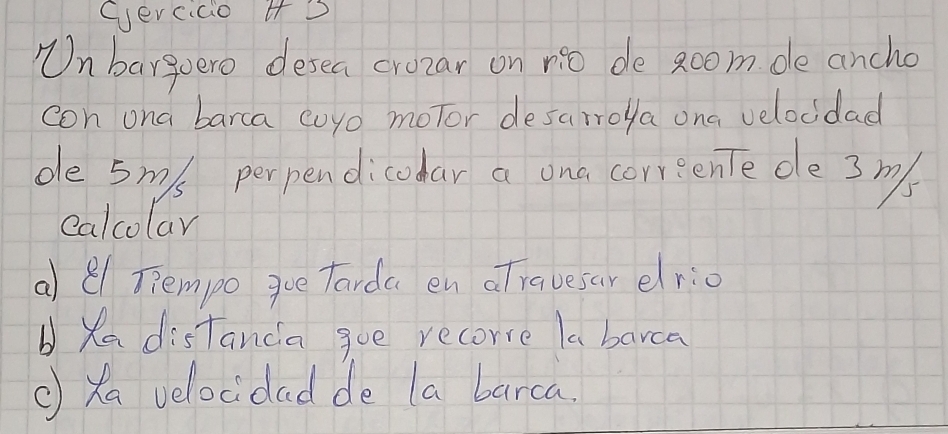 Ejercicio # 3
Un barquero desea cruzar un río de 200m. de ancho
con una barca cuyo motor desarrolla una velocidad
de 5 m/s perpendicular a una corriente de 3 m/s
calcular
a) El Tiempo que Tarda en atravesar el rio
b La distancia que recorre la barca
c) La velocidad de la barca.